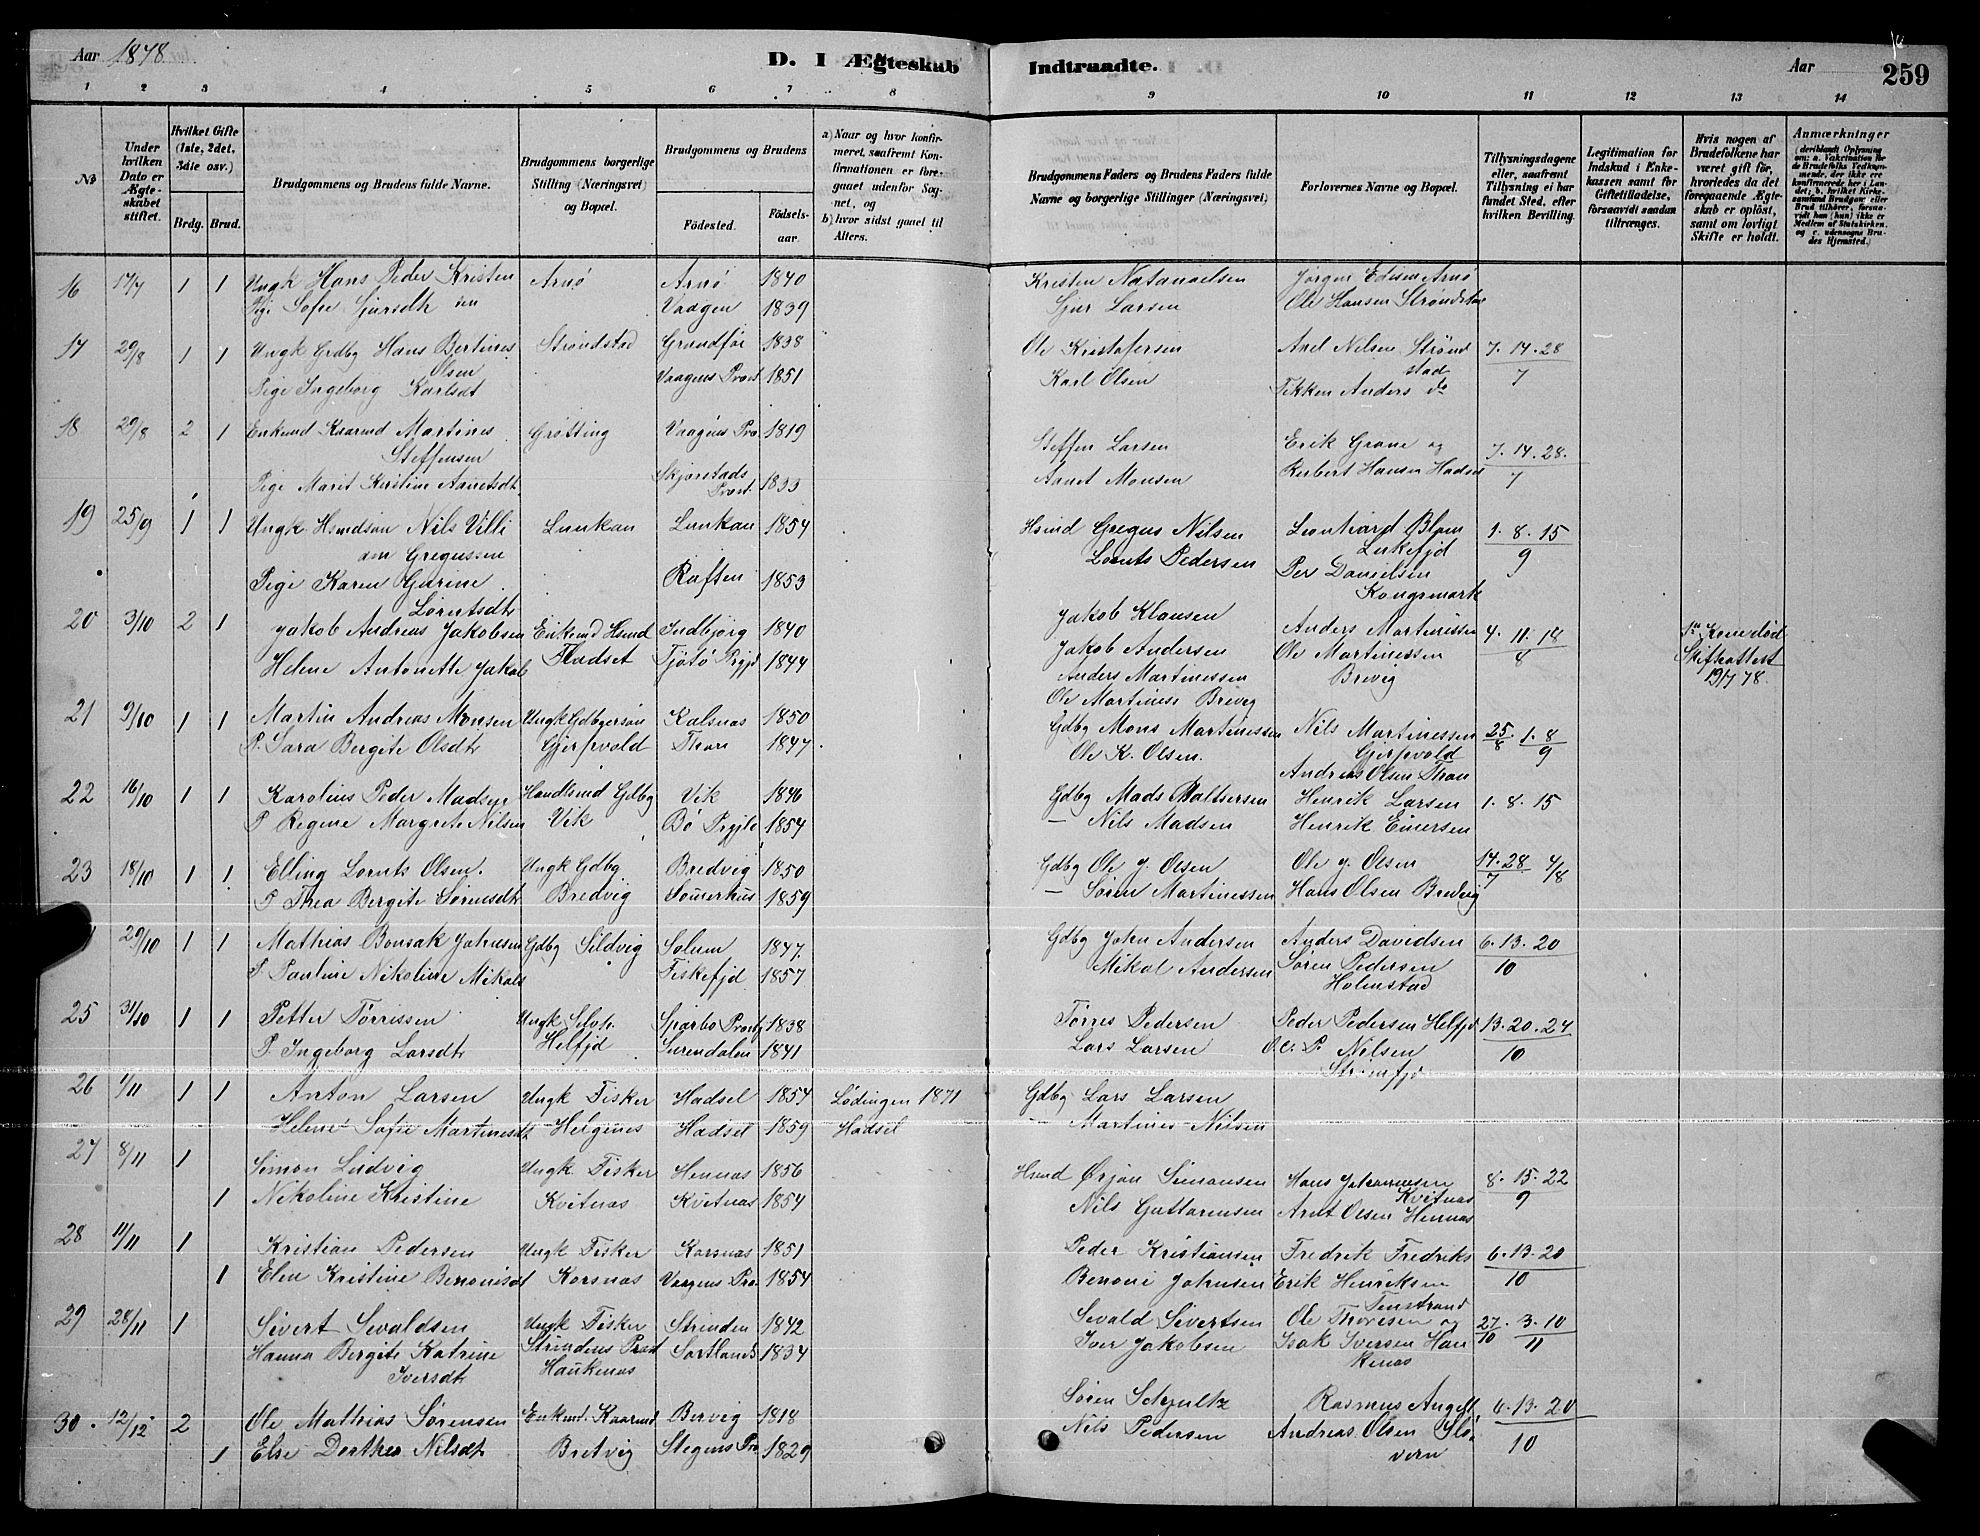 Aar 1878.
D. I Ægteskab Indtraadte.
Aar
259
1 2 3 4 5 6 7 8 9 10 11 12 13 14
No
Under hvilken Dato er Ægteskabet stiftet.
Hvilket Gifte (1ste, 2det, 3die osv.)
Brdg. Brud.
Brudgommens og Brudens fulde Navne.
Brudgommens borgerlige Stilling (Næringsvei) og Bopæl.
Brudgommens og Brudens
Fødested. Fødselsaar.
a) Naar og hvor konfirmeret, saafremt Konfirmationen er foregaaet udenfor Sognet, og
b) hvor sidst gaaet til Alters.
Brudgommens Faders og Brudens Faders fulde Navne og borgerlige Stillinger (Næringsvei)
Forlovernes Navne og Bopæl.
Tillysningsdagene eller, saafremt Tillysning ei har fundet Sted, efter hvilken Bevilling.
Legitimation for Indskud i Enkekassen samt for Giftetilladelse, forsaavidt saadan tiltrænges.
Hvis nogen af Brudefolkene har været gift, hvorledes da det foregaaende Ægteskab er opløst, samt om lovligt Skifte er holdt.
Anmærkninger (deriblandt Oplysning om: a. Vakcination for de Brudefolks Vedkommende, der ikke ere konfirmerede her i Landet; b. hvilket Kirkesamfund Brudgom eller Brud tilhører, forsaavidt han (hun) ikke er Medlem af Statskirken, og c. udensogns Brudes Hjemsted.)
16 17/7 1 1 Ungk Hans Peder Kristen Arnø Arnø 1840 Kristen Natanaelsen Jørgen Edisen Arnø
Pige Sofie Gjursdtr sen Vaagen 1839 Gjur Larsen Ole Hansen Strøndstad
17 29/8 1 1 Ungk Grdbg Hans Bertines Strøndstad Grundfør 1838 Ole Kristofersen Axel Nilsen Strønd 7. 14. 28
Olsen stad 7
Pige Ingeborg Karlsdt Vaagens Prest 1851 Karl Olsen Tikken Anders do
18 29/8 2 1 Enkmd Kaarmd Martines Grøtting Vaagens Pre 1819 Steffen Larsen Erik Grane og 7. 14. 28.
Steffensen 7
Pige Marit Kirstine Aanetsdt Skjerstads Prest. 1833 Aanet Monsen Rerbert Hansen Hadsel
19 25/9 1 1 Ungk Hsmdsøn Nils Villi Lunkan Lunkan 1854 Hsmd Gregus Nilsen Leonhard Blom 1. 8. 15
am Gregussen Lirkefjd 9
Pige Karen Gurine Raften 1853 Lornts Pedersen Per Danielsen
Lorntsdtr Kongsmark
20 3/10 2 1 Jakob Andreas Jakobsen Enkmd Hsmd Indbjorg 1840 Jakob Klausen Anders Martinessen 4. 11. 18 1ste Kone død
Helene Antonette Jakob Fladset Tjøtø Prgjd 1844 Jakob Andersen Ole Martinessen 8 Skifteattest
Anders Martinessen Brevig 19/7 78.
Ole Martines Brevig
21 9/10 1 1 Martin Andreas Monsen Ungk Gdbgersøn Kalsnas 1850 Gdbg Mons Martinessen Nils Martinessen 25/8. 1. 8
P. Sara Bergite Olsdtr Gjersvold Thon 1847 Ole K. Olsen. Gjersvold 9
Andreas Olsen Thon
22 16/10 1 1 Karolius Peder Madsen Handlsmd Gdbg Vik 1846 Gdbg Mads Baltsersen Henrik Larsen 1. 8. 15
P Regine Margrete Nilsen Vik Bø Prgjld 1854 — Nils Madsen Henrik Einersen
23 18/10 1 1 Elling Lornts Olsen. Ungk Gdbg Bredvig 1850 Gdbg Ole J. Olsen Ole J. Olsen 14. 28 4/8
P Thea Bergite Sørensdt Bredvig Somerhus 1859 — Søren Martinessen Hans Olsen Bredvig 7
29/10 1 1 Mathias Bonsak Johnsen Gdbg Sildvig Solum 1847. Gdbg John Andersen Anders Davidsen 6. 13. 20
P. Pauline Nikoline Mikals Fiskefjd 1857 Mikal Andersen Søren Pedersen 10
Holmstad
25 31/10 1 1 Petter Tørrissen Ungk Selvp. Sparbo Prestg 1838 Tørres Pedersen Peder Pedersen Helfjd 13. 20. 27
P. Ingeborg Larsdtr Helfjd Surendalen 1841 Lars Larsen Ole P. Nilsen 10
26 1/11 1 1 Anton Larsen Ungk Fisker Hadsel 1854 Lødingen 1871 Gdbg Lars Larsen
Helene Sofie Martinesdt Helgenes Hadsel 1859 Hadsel — Martines Nilsen
27 8/11 1 Simon Ludvig Ungk Fisker Hennas 1856 Hsmd Ørjan Simonsen Hans Johannesen 8. 15. 22
1 Nikoline Kristine Kvitnas Kvitnas 1854 Nils Guttormsen Kvitnas 9
Arnt Olsen Hennas
28 11/11 1 Kristian Pedersen Ungk Fisker Korsnas 1851 Peder Kristiansen Fredrik Fredriks 6. 13. 20
1 Elen Kristine Benonisdt Korsnas Vaagens Pre. 1854 Benoni Johnsen Erik Henriksen 10
Finstrand
29 28/11 1 Sivert Sivaldsen Ungk Fisker Strinden 1842 Sivald Sivertsen Ole Thorisen og 27/10. 3. 10
Hanna Bergite Katrine Strindens Prest Sortlands 1834 Iver Jakobsen Isak Iversen Hau 11
Iversdtr Haukenas kenas
30. 12/12 2 Ole Mathias Sørensen Enkmd. Kaarmd Bervig 1818 Søren Schjultz Rasmus Angell 6. 13. 20
1 Else Dorthea Nilsdt Bretvig Stegens Pre 1829 Nils Pedersen Andreas Olsen Slo 10
vern